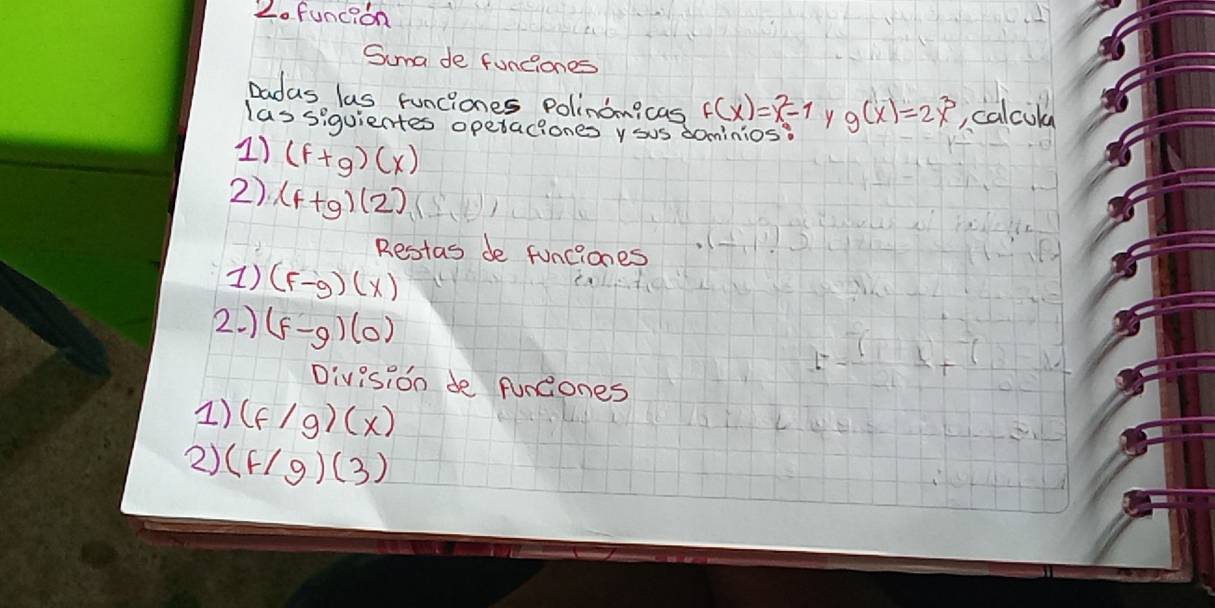 2. función
Suma de funciones
Dadas las funciones Polinómicas f(x)=x²-1 y g(x)=2x³, calcula
las siguientes operaciones y sus dominios:
1) (f+g)(x)
2) (f+g)(2)
Restas de funciones
1) (f-g)(x)
2.) (f-g)(0)
División de funciones
1) (f/g)(x)
2) (f/g)(3)